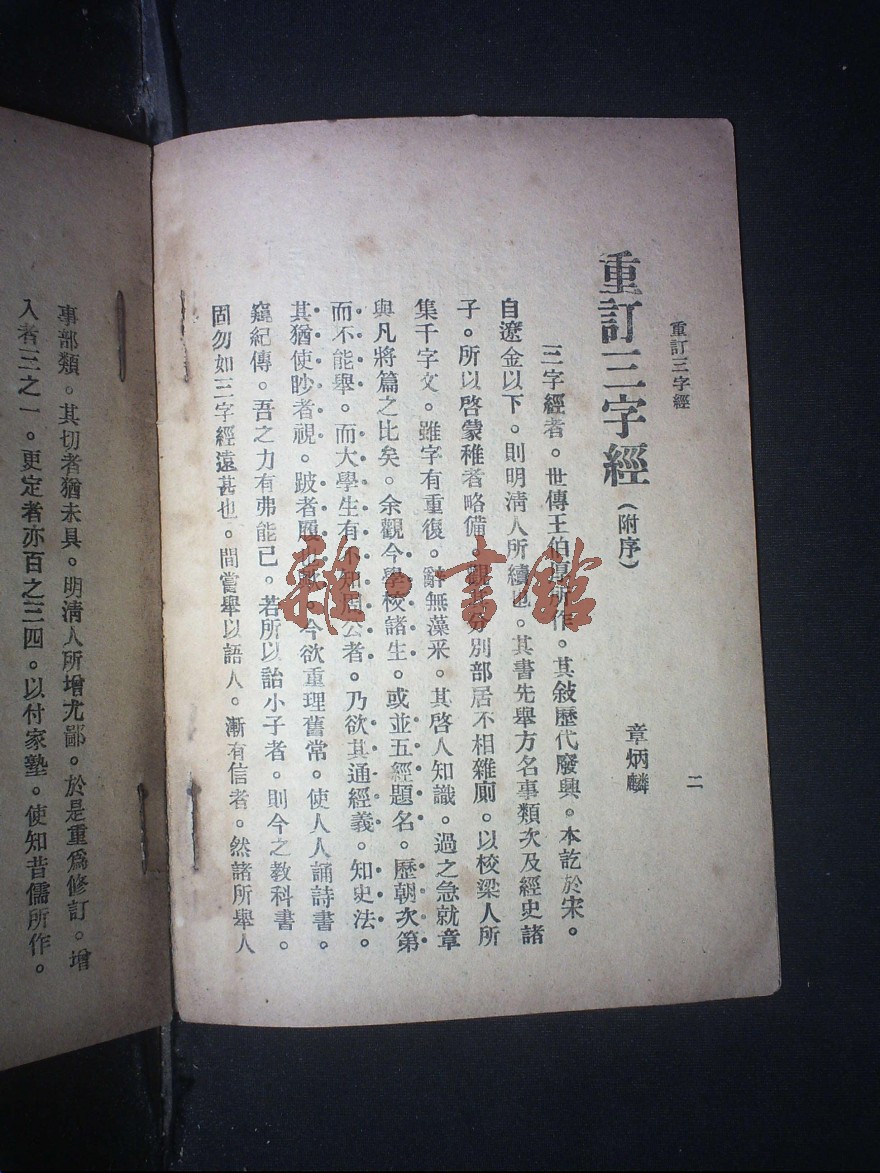 重訂三字經
二
重訂三字經(附序)
章炳麟
三字經者。世傳王伯厚所作。其敍歷代廢興。本訖於宋。
自遼金以下。則明清人所續也。其書先舉方名事類次及經史諸
子。所以啓蒙稚者略備。觀其分別部居不相雜廁。以校梁人所
集千字文。雖字有重復。辭無藻采。其啓人知識。過之急就章
與凡將篇之比矣。余觀今學校諸生。或並五經題名。歷朝次第
而不能舉。而大學生有不知周公者。乃欲其通經義。知史法。
其猶使眇者視。跛者履也歟。今欲重理舊常。使人人誦詩書。
窺紀傳。吾之力有弗能已。若所以詒小子者。則今之教科書。
固勿如三字經遠甚也。間嘗舉以語人。漸有信者。然諸所舉人
事部類。其切者猶未具。明清人所增尤鄙。於是重爲修訂。增
入者三之一。更定者亦百之三四。以付家塾。使知昔儒所作。
雜·書館